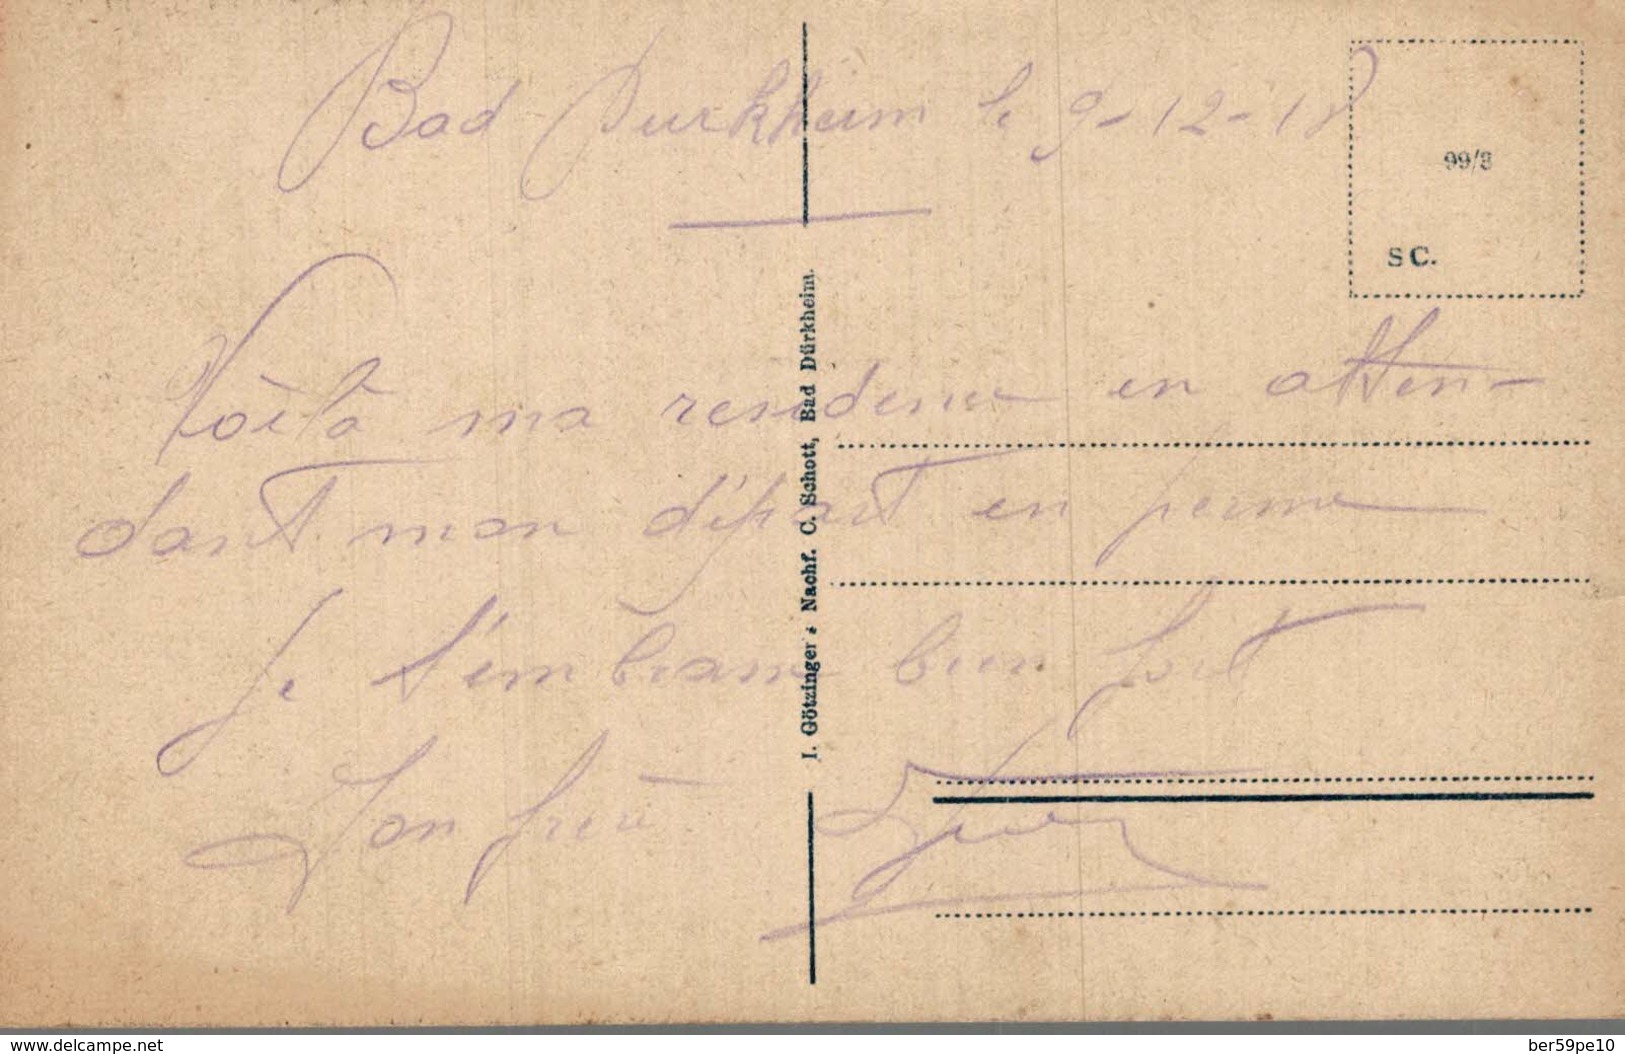 Bad Durkheim le 9-12-18
99/8
S C.
Voilà ma residence en atten-
dant mon départ en perme
Je t'embrasse bien fort
Ton frère
I. Götzinger : Nachf. C. Schott, Bad Dürkheim.
www.delcampe.net
ber59pe10